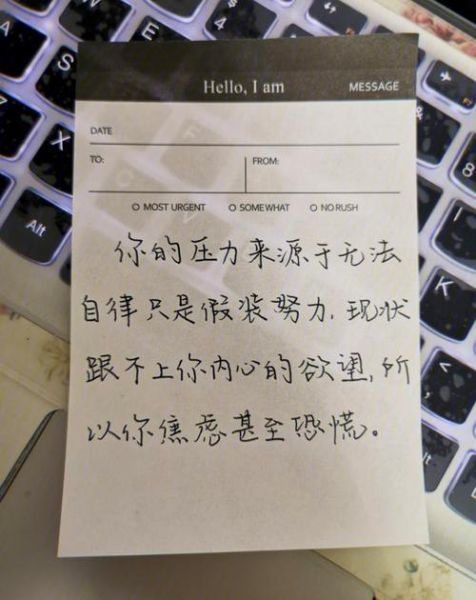 Hello, I am
MESSAGE
DATE
TO:
FROM:
O MOST URGENT O SOMEWHAT O NO RUSH
你的压力来源于无法
自律只是假装努力,现状
跟不上你内心的欲望,所
以你焦虑甚至恐慌。
Alt
S
X
K